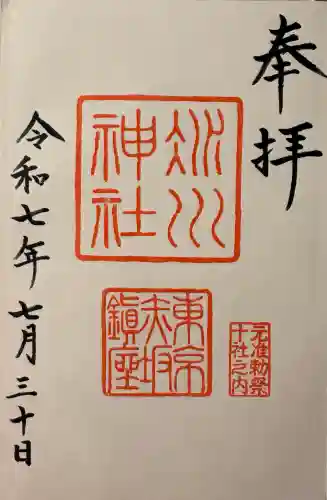 奉拝
氷川神社
東京赤坂鎮座
元准勅祭十社之内
令和七年七月三十日